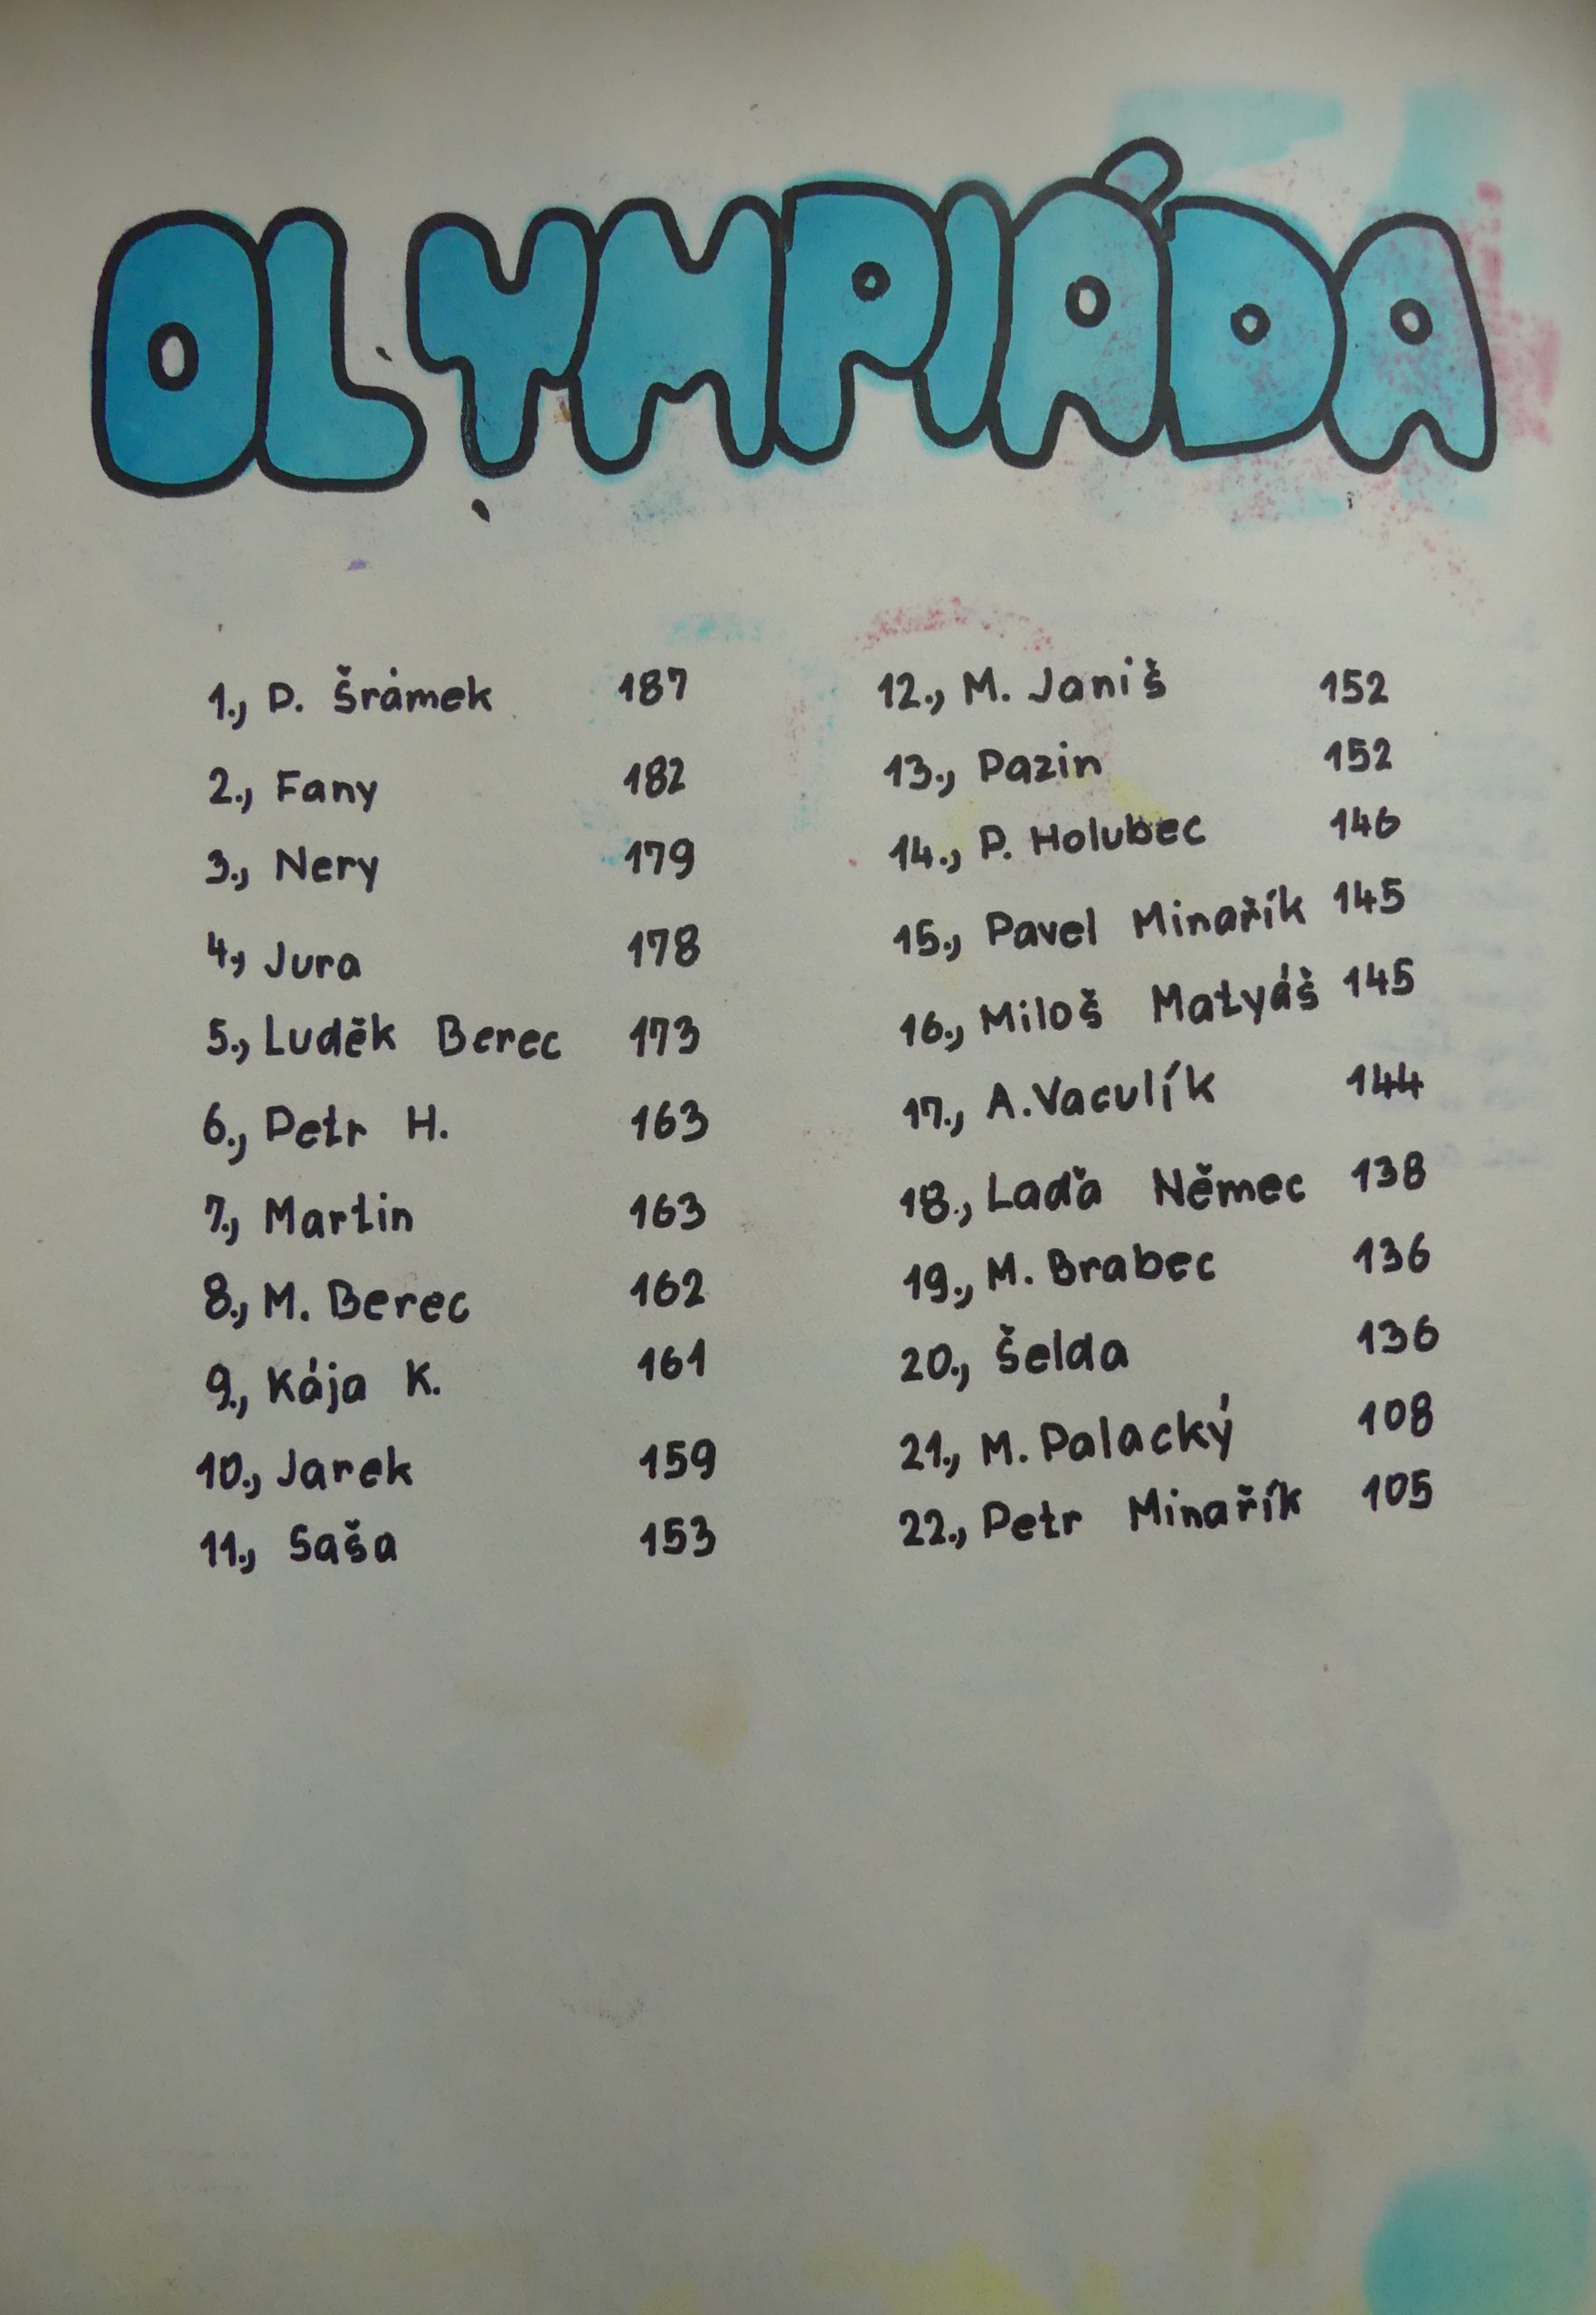 OLYMPIÁDA
1., P. Šrámek 187
2., Fany 182
3., Nery 179
4., Jura 178
5., Luděk Berec 173
6., Petr H. 163
7., Martin 163
8., M. Berec 162
9., Kája K. 161
10., Jarek 159
11., Saša 153
12., M. Janiš 152
13., Pazin 152
14., P. Holubec 146
15., Pavel Minařík 145
16., Miloš Matyáš 145
17., A. Vaculík 144
18., Laďa Němec 138
19., M. Brabec 136
20., Šelda 136
21., M. Palacký 108
22., Petr Minařík 105